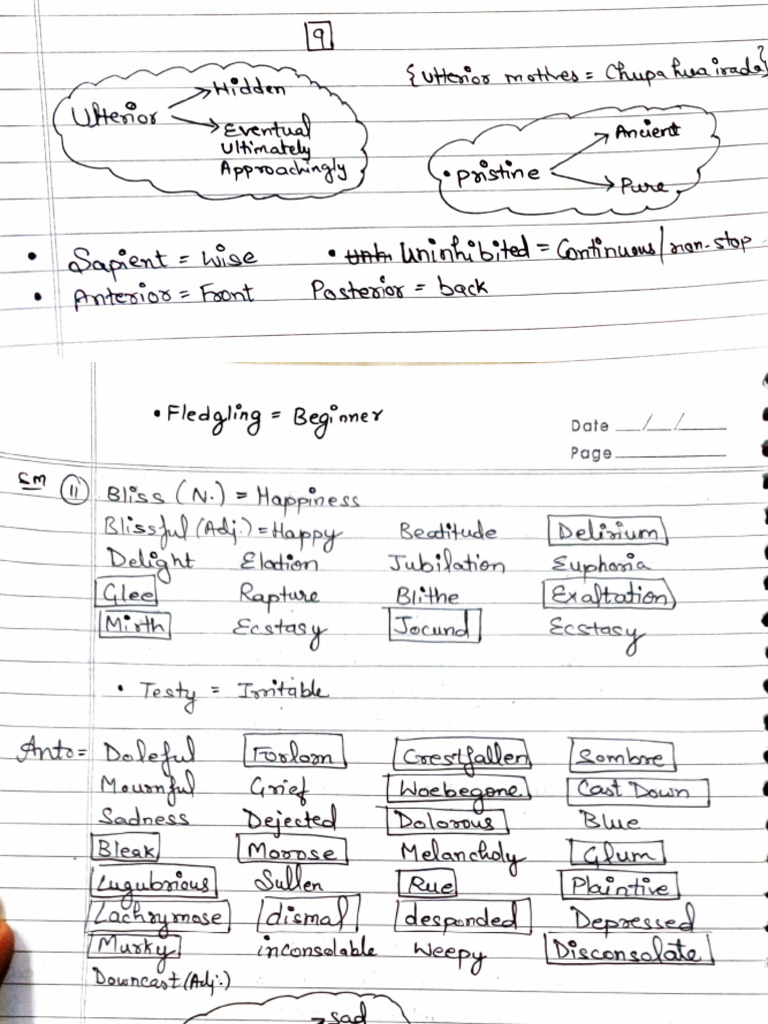 9
{Ulterior motives = Chupa hua irada}
Ulterior → Hidden
→ Eventual
Ultimately
Approachingly
• Pristine → Ancient
→ Pure
• Sapient = Wise • Uninhibited = Continuous/non-stop
• Anterior = Front Posterior = back
• Fledgling = Beginner
Date __/__/__
Page
Sm 11 Bliss (N.) = Happiness
Blissful (Adj.) = Happy Beatitude Delirium
Delight Elation Jubilation Euphoria
Glee Rapture Blithe Exaltation
Mirth Ecstasy Jocund Ecstasy
• Testy = Irritable
Anto = Doleful Forlorn Crestfallen Sombre
Mournful Grief Woebegone Cast Down
Sadness Dejected Dolorous Blue
Bleak Morose Melancholy Glum
Lugubrious Sullen Rue Plaintive
Lachrymose dismal desponded Depressed
Murky inconsolable Weepy Disconsolate
Downcast (Adj.)
→ sad